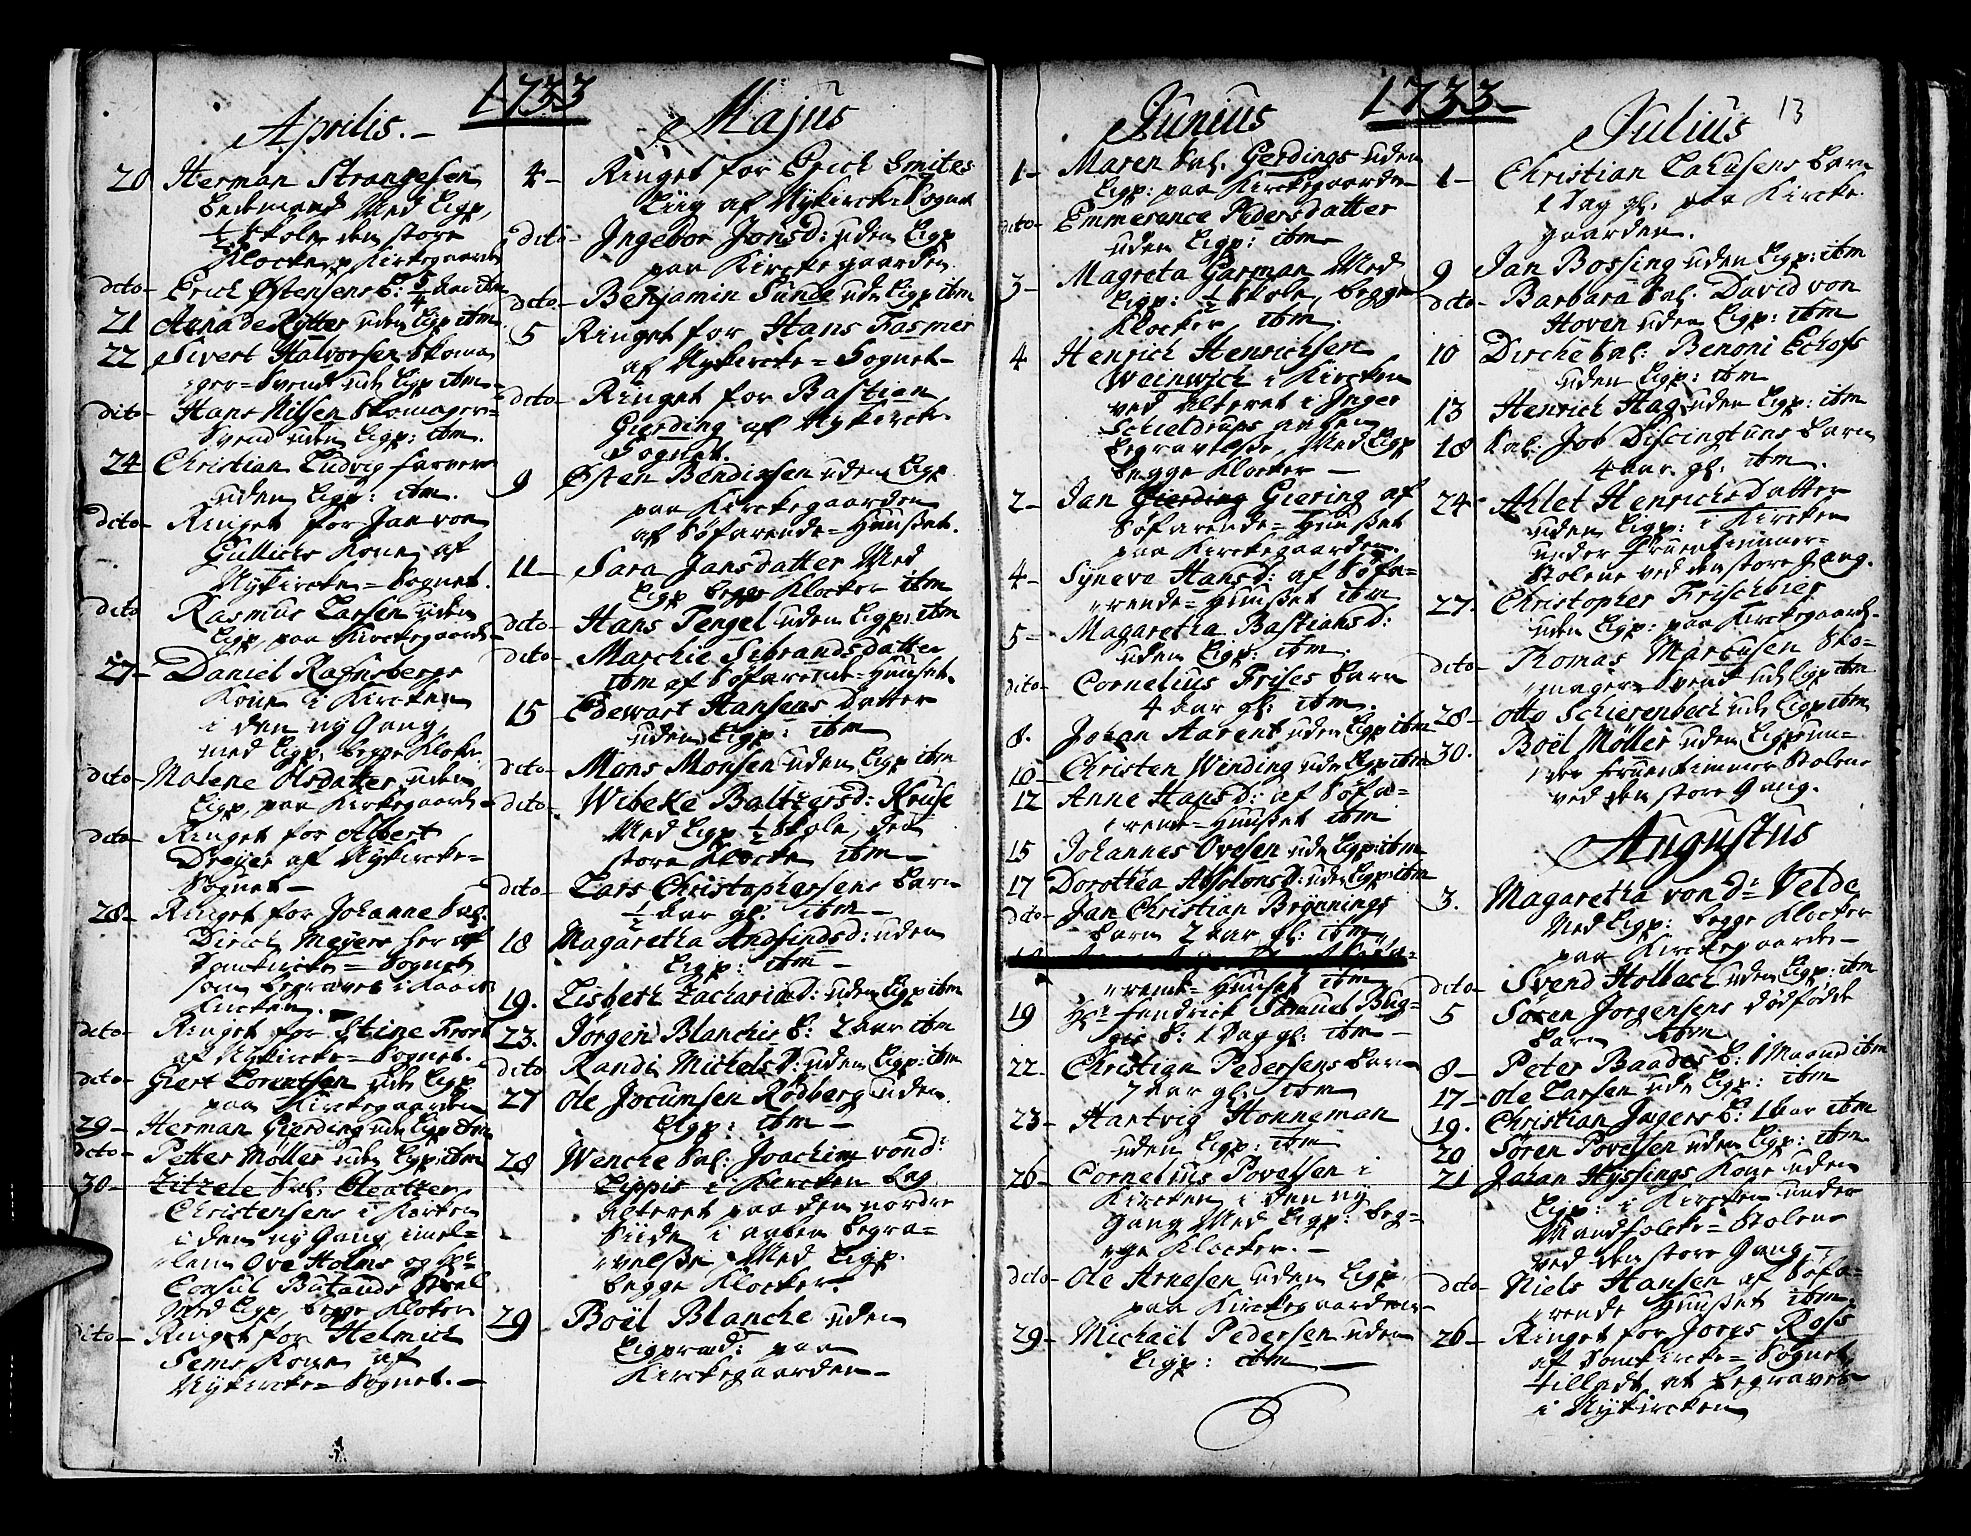 1733
Aprilis.
20 Herman Strangesen
Bedemand Med Ligp,
1/2 Skole den store
Klocke, p Kirkegaarde
dito Erich Østensens b: 5/4 Aar ibm
21 Anna de Rÿtter uden Ligp ibm
22 Sivert Halvorsen Skoma
ger=Svend ud Ligp ibm
dito Hans Nilsen Skomager=
Svend uden Ligp: ibm.
24 Christian Ludvig farver
uden Ligp: ibm.
dito Ringet for Jan von
Gullichs Kone af
Nykircke=Sognet.
dito Rasmus Larsen uden
Ligp, paa Kirckegaard
27 Daniel Rafnsbergs
Kone i Kircken
i den ny Gang
med Ligp, begge Klocker
dito Malene Olsdatter uden
Ligp, paa Kirckegaard
dito Ringet for Albert
Dreyer af Nykircke=
Sognet
28 Ringet for Johanne Sal.
Dirich Meyers her af
Domkircke=Sognet
som begravet i Kaars
Kircken.
dito Ringet for Stine Frost
af Nykircke=Sognet.
dito Giert Lorentsen ud Ligp
paa Kirckegaarden
29 Herman Gierding ud Ligp ibm
dito Petter Möller uden Ligp: ibm
30 Zitzele Sal:
Christensens i Kircken
i den ny Gang imel=
lem Ove Holms og Hr
Consul Butauds Stoel
Med Ligp, begge Klocker
dito Ringet for Helmich
Sems Kone af
Nykircke=Sognet.
Majus
4 Ringet for Erich Smites
Liig af Nykircke=Sognet
dito Ingebor Jonsd: uden Ligp
paa Kirckegaarden
dito Benjamin Sunde uden Ligp ibm
5 Ringet for Hans Fasmer
af Nykircke=Sognet
dito Ringet for Bastien
Gierding af Nykircke
Sognet.
9 Østen Bendixsen uden Ligp
paa Kirckegaarden
af Söfarende=Huuset.
11 Sara Jansdatter Med
Ligp begge Klocker ibm
dito Hans Tengel uden Ligp: ibm
dito Marchie Sibrandsdatter
ibm af Söfarende=Huuset.
15 Edewart Hansens Datter
uden Ligp: ibm
dito Mons Monsen uden Ligp ibm
dito Wibeke Baltzersd: Kruse
Med Ligp 1/2 Skole, den
store Klocke ibm
dito Lars Christophersens Barn
1/2 Aar gl. ibm
18 Magaretha Andfindsd: uden
Ligp: ibm
19. Lisbeth Zachariæd: uden Ligp ibm
23. Jörgen Blanchis b: 2 Aar ibm
dito Randi Michelsd: uden Ligp: ibm
27 Ole Jocumsen Rödberg uden
Ligp: ibm
28 Wenche Sal: Joachim vond:
Lippis i Kircken bag
Alteret paa den nordre
Siide i aaben begra=
velse, Med Ligp.
begge Klocker.
29 Boël Blanche uden
Ligpræd: paa
Kirckegaarden
1733
Junius
1 Maren Sal. Gerdings uden
Ligp: paa Kirckegaarden
dito Emmerance Pedersdatter
uden Ligp: ibm
3 Magreta Garman Med
Ligp: 1/2 Skole, begge
Klocker ibm.
4 Henrich Henrichsen
Weinwich i Kircken
ved Alteret i Inger
Schieldrups aaben
begravelse, Med Ligp
begge Klocker
2 Jan Gierding Giering af
Söfarende=Huuset
paa Kirckegaarden.
4 Syneva Hansd: af Söfa=
rende=Huuset ibm
5 Magaretha Bastiansd:
uden Ligp: ibm.
dito Cornelius Frises barn
4 Aar gl: ibm.
8. Johan Aarent uden Ligp ibm
10 Christen Winding uden Ligp ibm
12 Anne Hansd: af Söfa=
rende=Huuset ibm
15 Johannes Ovesen uden Ligp: ibm
17 Dorothea Absolonsd: uden Ligp: ibm
dito Jan Christian Brynnings
barn 2 Aar gl: ibm
rende=Huuset ibm
19 Hr Hendrick Samuel Büg=
gis b: 1 Dag gl: ibm
22 Christian Pedersens barn
7 Aar gl: ibm
23 Hartvig Honneman
uden Ligp: ibm
26 Cornelius Povelsen i
Kircken i den ny
Gang Med Ligp: beg=
ge Klocker.
dito Ole Arnesen uden Ligp
paa Kirckegaarden
29 Michaël Pedersen uden
Ligp: ibm
Julius
13
1 Christian barn
1 Dag gl. paa Kircke
gaarden.
9 Jan Bossing uden Ligp: ibm
dito Barbara Sal. David von
Hoven uden Ligp: ibm
10 Dirche Sal: Benoni Echofs
uden Ligp: ibm
13 Henrich Hag uden Ligp: ibm
18 Sal: Job Discingtuns barn
4 Aar gl. ibm.
24 Ahlet Henrichsdatter
uden Ligp: i Kircken
under Fruentimmer=
Stolene ved den store Gang.
27. Christopher Frischbier
uden Ligp: paa Kirckegaard.
dito Thomas Marcusen Sko=
mager=Svend ud Ligp ibm
28 Otto Schierenbech ud Ligp ibm
30. Boël Möller uden Ligp un=
der Fruentimmer Stolene
ved den store Gang.
Augustus
3. Magaretha von dr Velde
Med Ligp: begge Klocker
paa Kirckegaarde
dito Svend Holbech uden Ligp: ibm
5 Sören Jorgensens dödfödt
barn ibm
8 Peter Baades b: 1 Maaned ibm
17 Ole Larsen uden Ligp: ibm
19. Christian Jugers b: 1 Aar ibm
20 Sören Povelsen uden Ligp: ibm
21 Johan Hÿssings Kone uden
Ligp: i Kircken under
Mandfolcke=Stolene
ved den store Gang
dito Niels Hansen af Söfa=
rende Huuset ibm.
26 Ringet for Jores Ross
af Domkircke=Sognet,
tilladt at begraves
i Nykircken